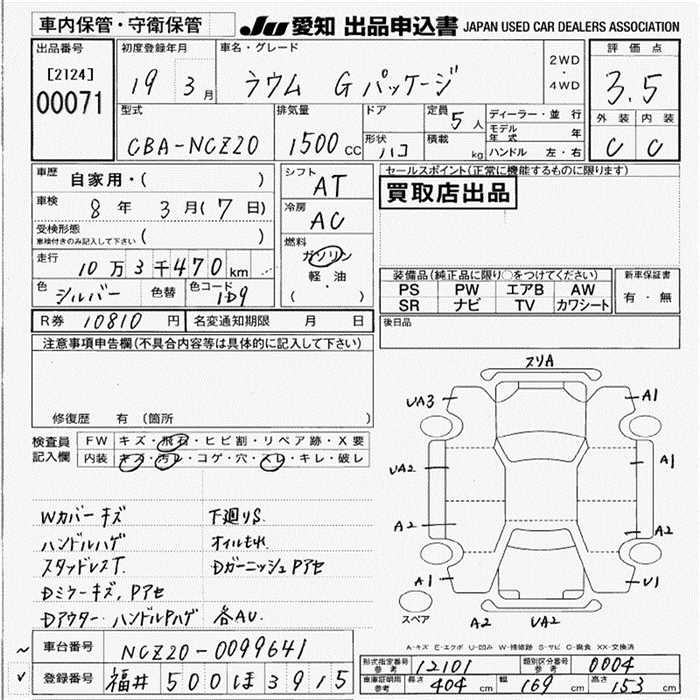 車内保管・守衛保管
JU 愛知 出品申込書 JAPAN USED CAR DEALERS ASSOCIATION
出品番号
[2124]
00071
初度登録年月
19 3月
車名・グレード
ラウム Gパッケージ
2WD
・
4WD
評価点
3.5
外装 内装
C C
型式
CBA-NCZ20
排気量
1500 CC
ドア
形状 ハコ
定員 5 人
積載 kg
ディーラー・並行
モデル年式 年
ハンドル 左・右
車歴 自家用・( )
車検 8年 3月(7日)
受検形態
車検付きのみ記入して下さい ( )
走行 10万3千470km
色 シルバー 色替 色コード 1D9
シフト
AT
冷房
AC
燃料
ガソリン
軽・油
( )
セールスポイント(正常に機能するものに限ります)
買取店出品
装備品(純正品に限り○をつけてください)
PS PW エアB AW
SR ナビ TV カワシート
新車保証書
有・無
R券 10810 円 名変通知期限 月 日
後日品
注意事項申告欄(不具合内容等は具体的に記入して下さい)
修復歴 有(箇所 )
検査員記入欄
FW キズ・飛石・ヒビ割・リペア跡・X要
内装 キズ・汚れ・コゲ・穴・スレ・キレ・破レ
Wカバーキズ 下廻りS
ハンドルハゲ オイルもれ
スタッドレスT. DガーニッシュPアセ
Dミラーキズ,Pアセ
Dアウターハンドルハゲ 各AU.
スリA
UA3 A1
UA2 A1
A2 A2
A1 U1
スペア
A2 UA2
A-キズ E-エクボ U-凹み W-補修跡 S-サビ C-腐食 XX-交換済
車台番号 NCZ20-0099641
登録番号 福井 500 ほ 3915
形式指定番号 参考 12101 類別区分番号 参考 0004
車庫証明用 参考 長さ 404 cm 幅 169 cm 高さ 153 cm